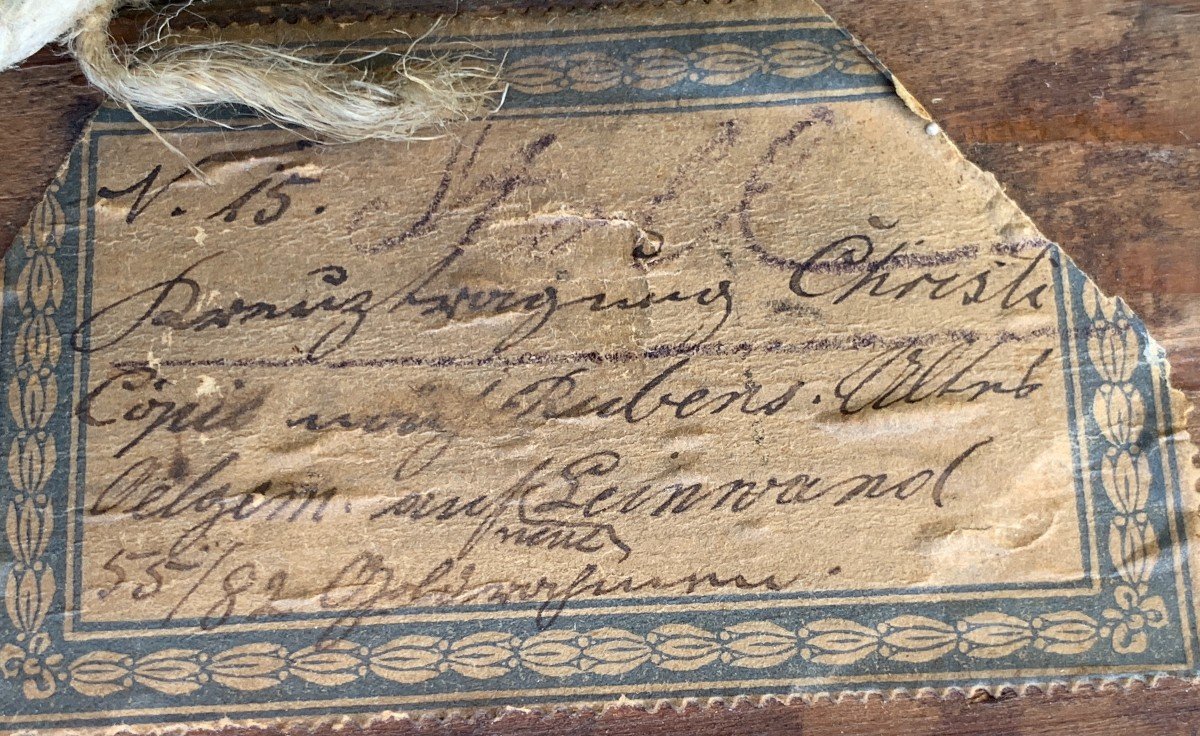 N. 15.
Kreuztragung Christi
Copie nach Rubens. Altes
Oelgem. auf Leinwand
neuer
55/82 Goldrahmen.